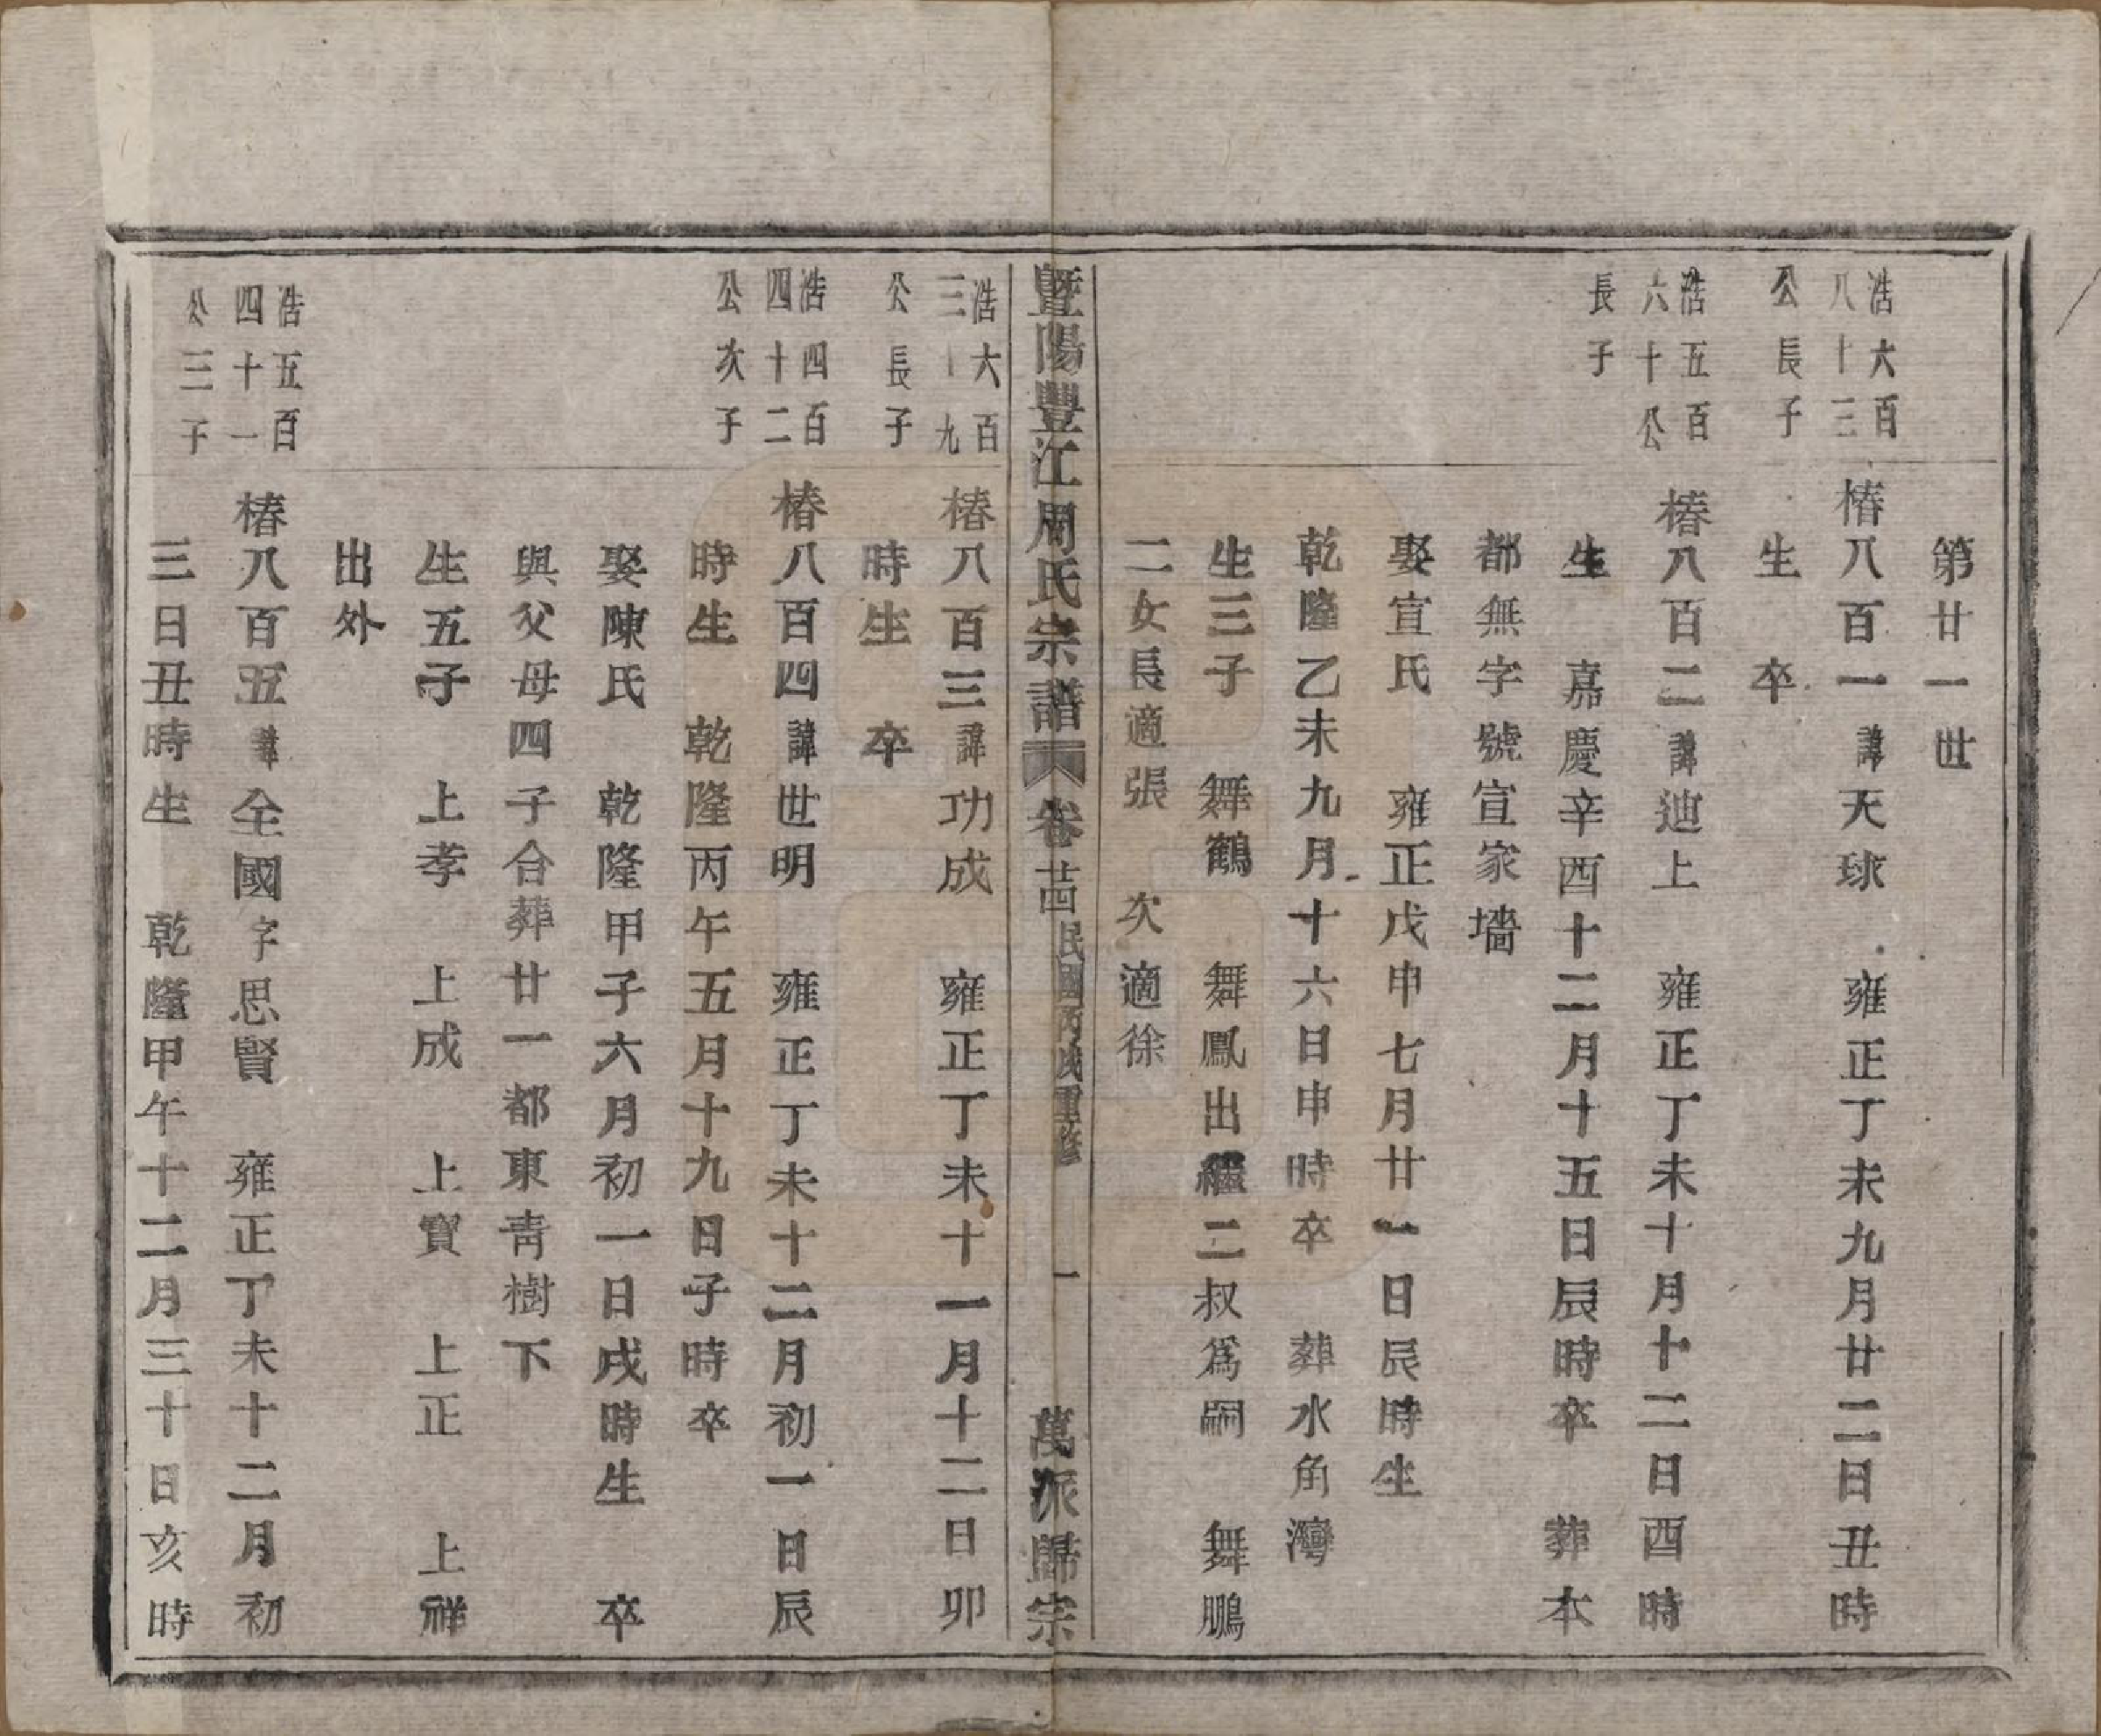 第廿一世
浩六百
八十三
公長子
椿八百一諱天球 雍正丁未九月廿二日丑時
生 卒
浩五百
六十公
長子
椿八百二諱迪上 雍正丁未十月十二日酉時
生 嘉慶辛酉十二月十五日辰時卒 葬本
都無字號宣家墻
娶宣氏 雍正戊申七月廿一日辰時生
乾隆乙未九月十六日申時卒 葬水角灣
生三子 舞鶴 舞鳳出繼二叔爲嗣 舞鵬
二女長適張 次適徐
暨陽豐江周氏宗譜 卷廿四 民國丙戌重修 一 萬派歸宗
浩六百
三十九
公長子
椿八百三諱功成 雍正丁未十一月十二日卯
時生 卒
浩四百
四十二
公次子
椿八百四諱世明 雍正丁未十二月初一日辰
時生 乾隆丙午五月十九日子時卒
娶陳氏 乾隆甲子六月初一日戌時生 卒
與父母四子合葬廿一都東青樹下
生五子 上孝 上成 上寶 上正 上祥
出外
浩五百
四十一
公三子
椿八百五諱全國字思賢 雍正丁未十二月初
三日丑時生 乾隆甲午十二月三十日亥時